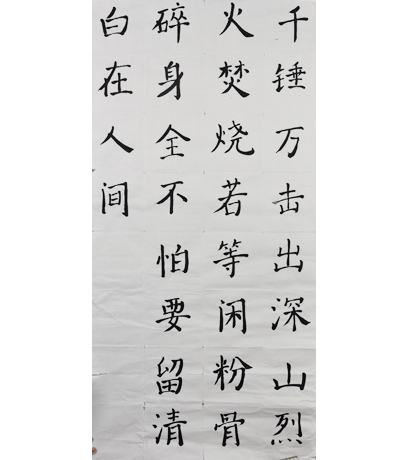 千锤万击出深山烈
火焚烧若等闲粉骨
碎身全不怕要留清
白在人间